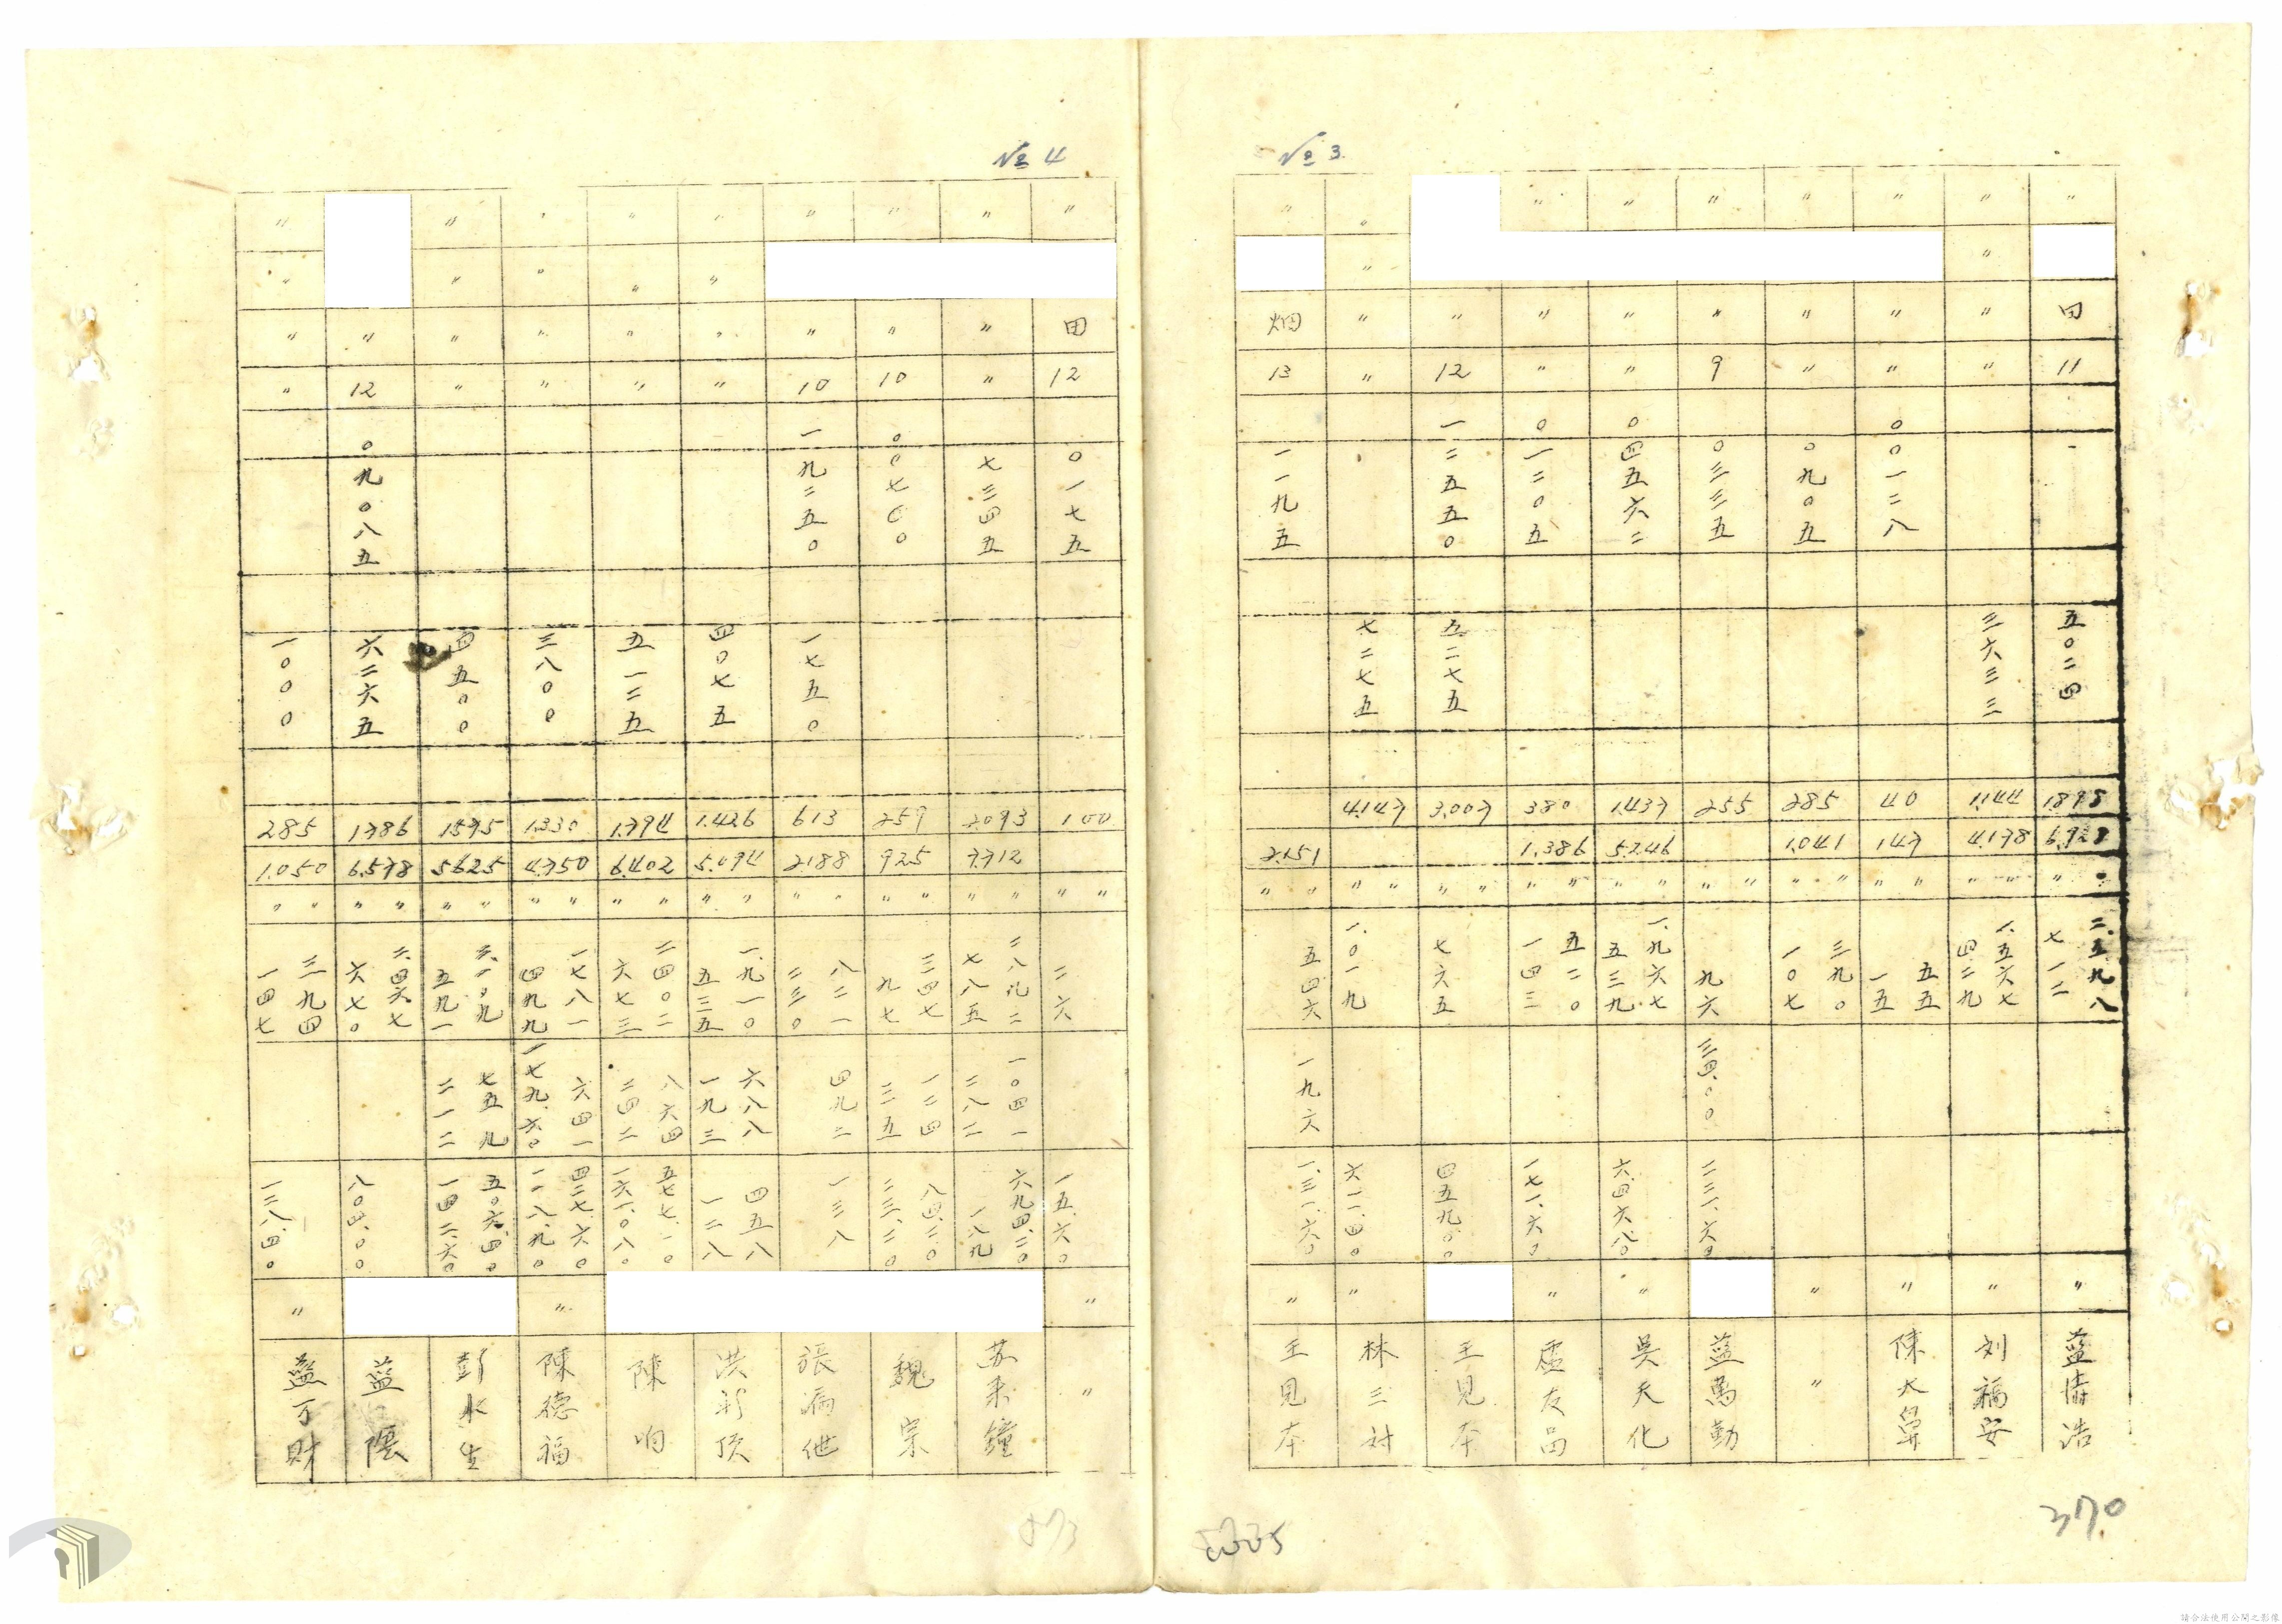 № 3
〃 〃 田 11 五〇二四 1.898 6.928 〃 〃 二.五九八 七一二 〃 藍清浩
〃 〃 〃 〃 三六三三 1.144 4.178 〃 〃 一.五六七 四二九 〃 刘福安
〃 〃 〃 〇〇一二八 40 147 〃 〃 五五 一五 〃 陳大鼻
〃 〃 〃 〇九〇五 285 1.041 〃 〃 三九〇 一〇七 〃 〃
〃 〃 9 〇三三五 255 〃 〃 九六 三四.〇〇 二三一.六〇 藍萬勤
〃 〃 〃 〇四五六二 1.437 5.246 〃 〃 一.九六七 五三九 六.四六.八〇 〃 吳天化
〃 〃 〃 〇一二〇五 380 1.386 〃 〃 五二〇 一四三 一七一.六〇 〃
〃 12 一二五五〇 五二七五 3.007 〃 〃 七六五 四五九.〇〇 王見本
〃 〃 〃 〃 七二七五 4.147 〃 〃 一.〇一九 六一一.四〇 〃 林三対
〃 畑 13 一一九五 2.151 〃 〃 五四六 一九六 一.三一.六〇 〃 王見本
5025
370
№ 4
〃 田 12 〇一七五 100 〃 〃 二六 一五.六〇 〃 〃
〃 〃 〃 七三四五 2.093 7.712 〃 〃 二八九二 七八五 一〇四一 二八二 六九四.二〇 一八九 苏来鐘
〃 〃 10 〇〇七〇〇 259 925 〃 〃 三四七 九七 一二四 三三五 八四.二〇 二三.二〇 魏宗
〃 〃 10 一九二五〇 一七五〇 613 2.188 〃 〃 八二一 二三〇 四九二 一三八
〃 〃 〃 〃 四〇七五 1.426 5.094 〃 〃 一.九一〇 五三五 六八八 一九三 四五八 一二八
〃 〃 〃 〃 五一二五 1.794 6.402 〃 〃 二四〇二 六七三 八六四 二四二 五七七.一〇 一六一.〇八 陳响
〃 〃 〃 〃 三八〇〇 1.330 4.750 〃 〃 一七八一 四九九 六四一 一七九.六〇 四二七.六〇 一一八.九〇 〃 陳德福
〃 〃 〃 〃 四五〇〇 1.575 5.625 〃 〃 二.一〇九 五九一 七五九 二一二 五〇六.四〇 一四二.六〇 彭水生
〃 12 〇九〇八五 六二六五 1.786 6.578 〃 〃 二.四六七 六七〇 八〇四.〇〇 藍隂
〃 〃 〃 〃 一〇〇〇 285 1.050 〃 〃 三九四 一四七 一二八.四〇 〃 藍丁財
請合法使用公開之影像